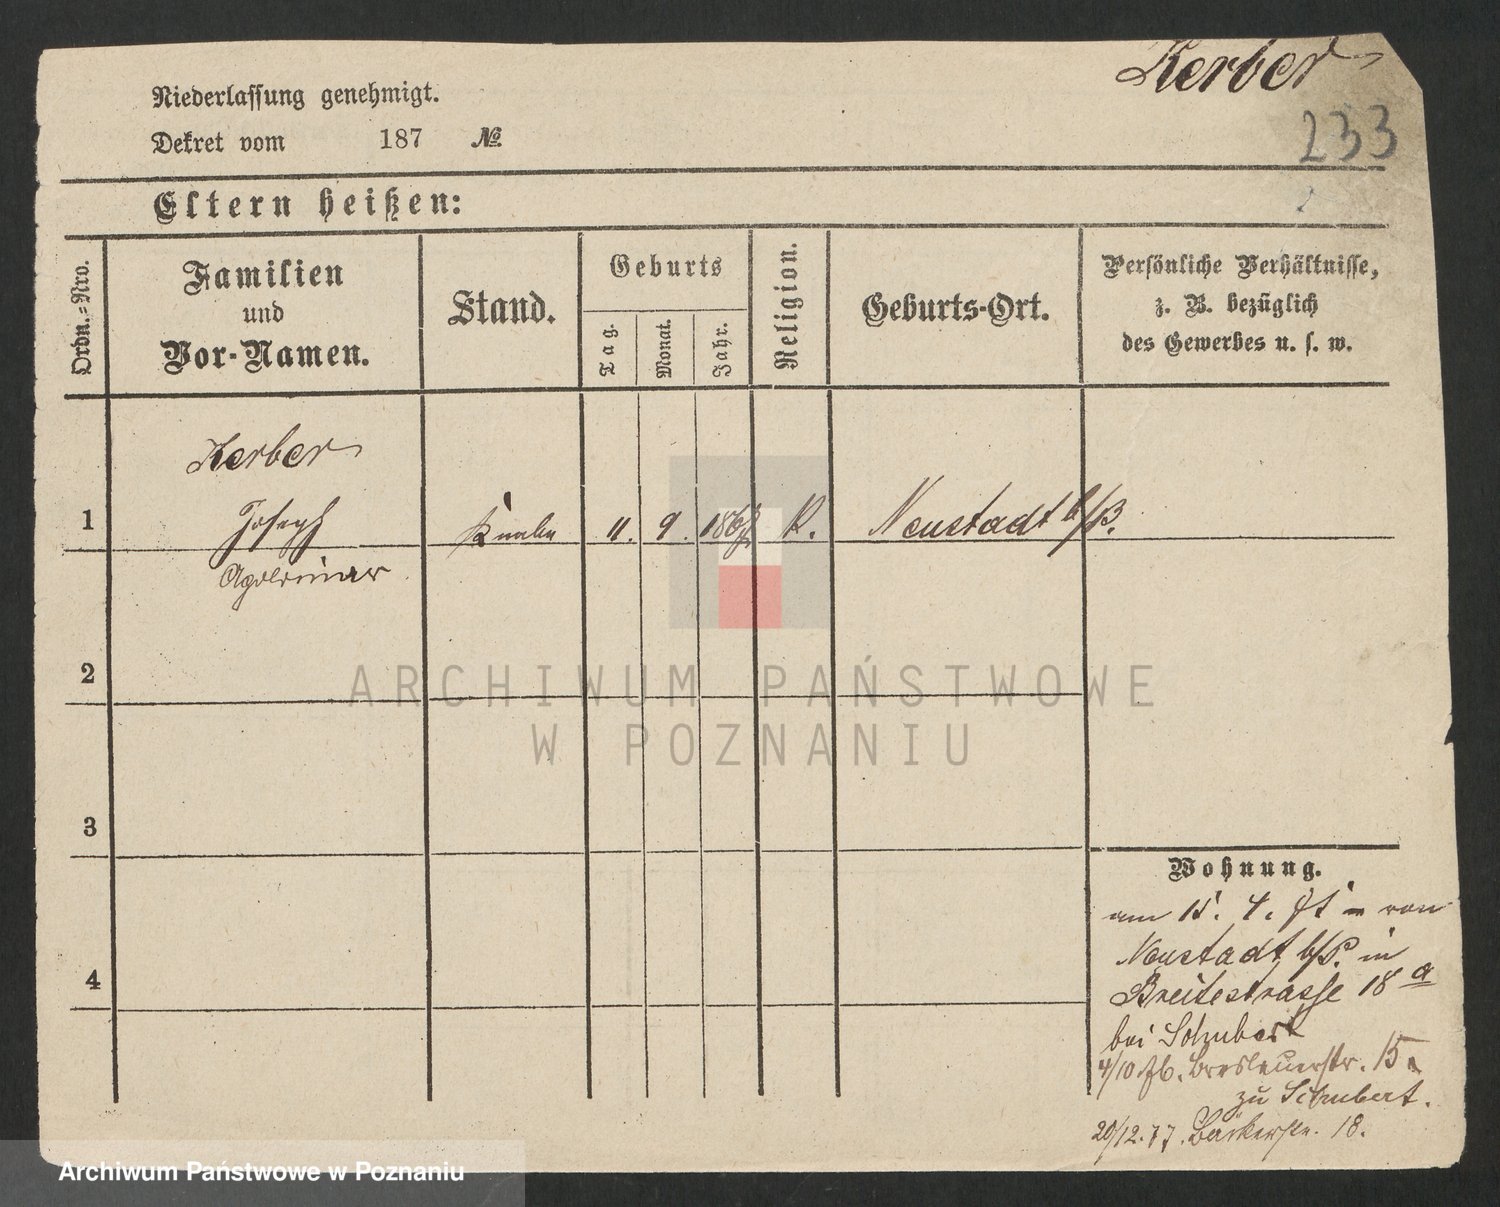 Kerber
Niederlassung genehmigt.
233
Dekret vom 187 №
Eltern heißen:
Ordn.-Nro.
Familien
und
Vor-Namen.
Stand.
Geburts
Tag.
Monat.
Jahr.
Religion.
Geburts-Ort.
Persönliche Verhältnisse,
z. B. bezüglich
des Gewerbes u. s. w.
Kerber
1 Joseph Knabe 11. 9. K. Neustadt b/P.
2
ARCHIWUM PAŃSTWOWE
W POZNANIU
3
Wohnung.
am 15. 4. von
Neustadt b/P. in
4
Breitestrasse 18 a
bei Schubert
4/10 Breslauerstr. 15.
zu Schubert.
20/12.77. Bäckerstr. 18.
Archiwum Państwowe w Poznaniu